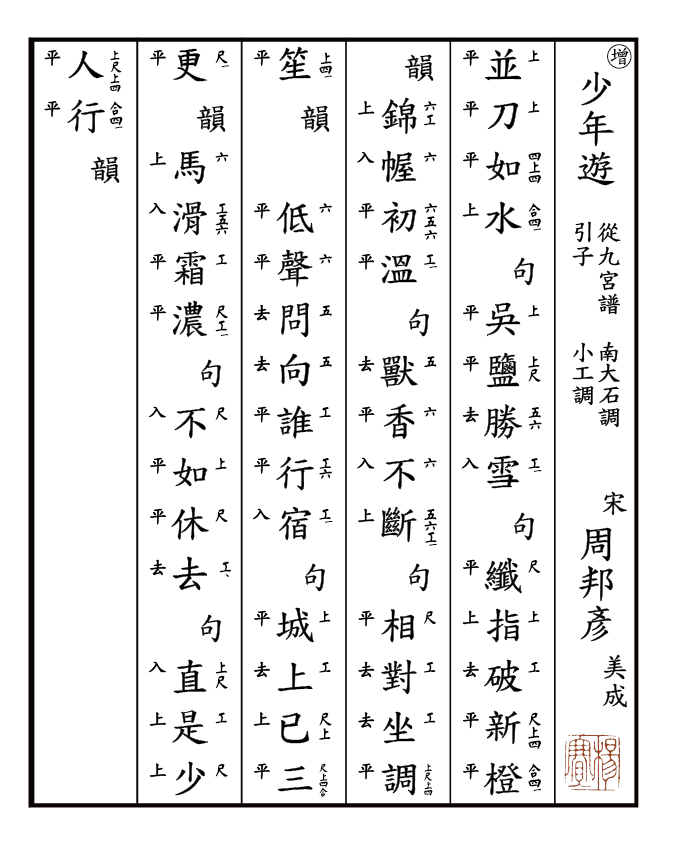 增
少年遊
從九宮譜
引子
南大石調
小工調
宋
周邦彥
美成
上 上 四上四 合四一 上 上尺 五六 工一 尺 上 工 尺上四 合四一
並刀如水句吳鹽勝雪句纖指破新橙
平平平上平平去入平上去平平
六工 六 六五六 工一 五 六 六 五六工一 尺 工 工 上尺上四
韻錦幄初溫句獸香不斷句相對坐調
上入平平去平入上平去去平
上四一 六 六 五 五 工 工六 工一 上 工 尺上 尺上四合
笙韻低聲問向誰行宿句城上已三
平平平去去平平入平去上平
尺一 六 工五六 工 尺工一 尺 上 尺 工、 上尺 工 尺
更韻馬滑霜濃句不如休去句直是少
平上入平平入平平去入上上
上尺上四 合四一
人行韻
平平